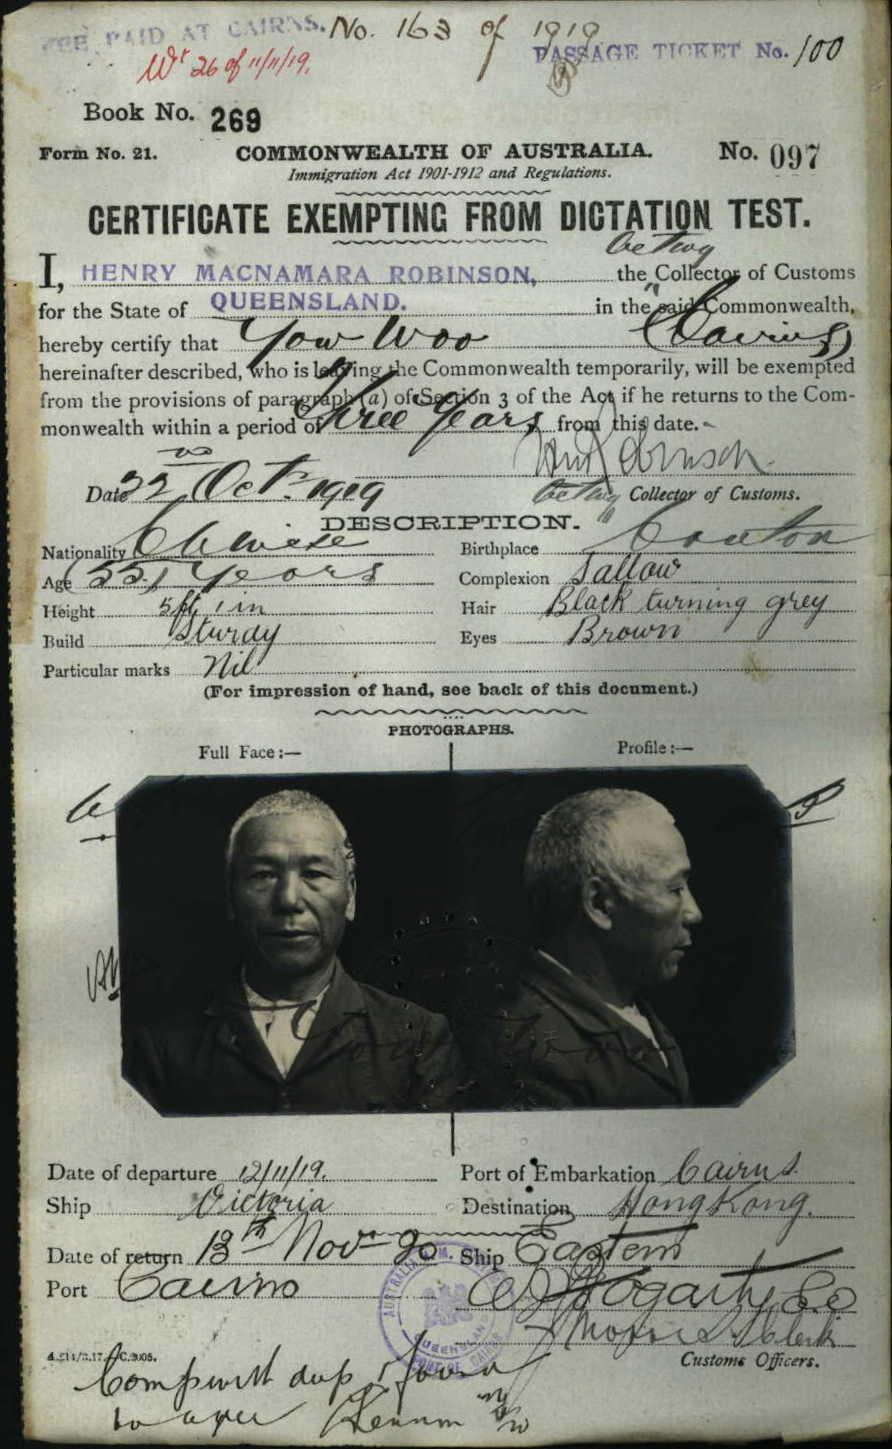 FEE PAID AT CAIRNS. No. 163 of 1919
Wt 26 of 11/11/19. PASSAGE TICKET No. 100
Book No. 269
Form No. 21. COMMONWEALTH OF AUSTRALIA. No. 097
Immigration Act 1901-1912 and Regulations.
CERTIFICATE EXEMPTING FROM DICTATION TEST.
Acting
I, HENRY MACNAMARA ROBINSON, the Collector of Customs
for the State of QUEENSLAND. in the said Commonwealth,
hereby certify that Yow Woo (Cairns)
hereinafter described, who is leaving the Commonwealth temporarily, will be exempted
from the provisions of paragraph (a) of Section 3 of the Act if he returns to the Com-
monwealth within a period of Three Years from this date.
Date 22nd Oct. 1919 Acting Collector of Customs.
DESCRIPTION.
Nationality Chinese Birthplace Canton
Age (55) Years Complexion Sallow
Height 5 ft 1 in Hair Black turning grey
Build Sturdy Eyes Brown
Particular marks Nil
(For impression of hand, see back of this document.)
PHOTOGRAPHS.
Full Face:— Profile:—
Yow Woo
Date of departure 12/11/19. Port of Embarkation Cairns
Ship Victoria Destination Hong Kong.
Date of return 13th Nov 20 Ship Eastern
Port Cairns
Clerk
Customs Officers.
QUEENSLAND